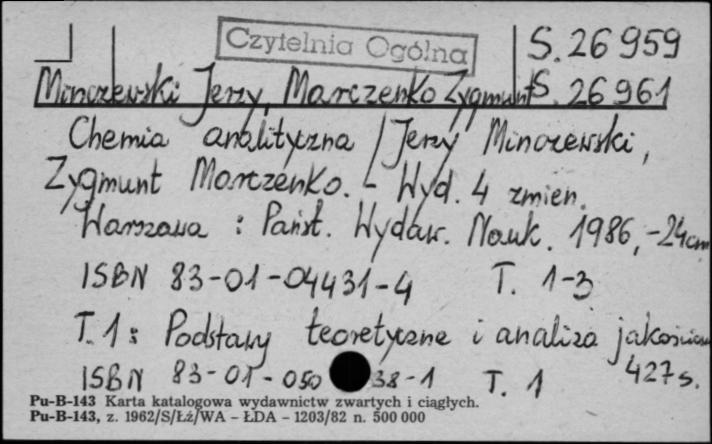 Czytelnia Ogólna
S. 26 959
Minczewski Jerzy, Marczenko Zygmunt S. 26 961
Chemia analityczna / Jerzy Minczewski,
Zygmunt Marczenko. - Wyd. 4 zmien.
Warszawa : Państ. Wydaw. Nauk. 1986, - 24cm
ISBN 83-01-04431-4 T. 1-3
T. 1 : Podstawy teoretyczne i analiza
427 s.
ISBN 83-01-050 38-1 T. 1
Pu-B-143 Karta katalogowa wydawnictw zwartych i ciągłych.
Pu-B-143, z. 1962/S/Łż/WA - ŁDA - 1203/82 n. 500 000